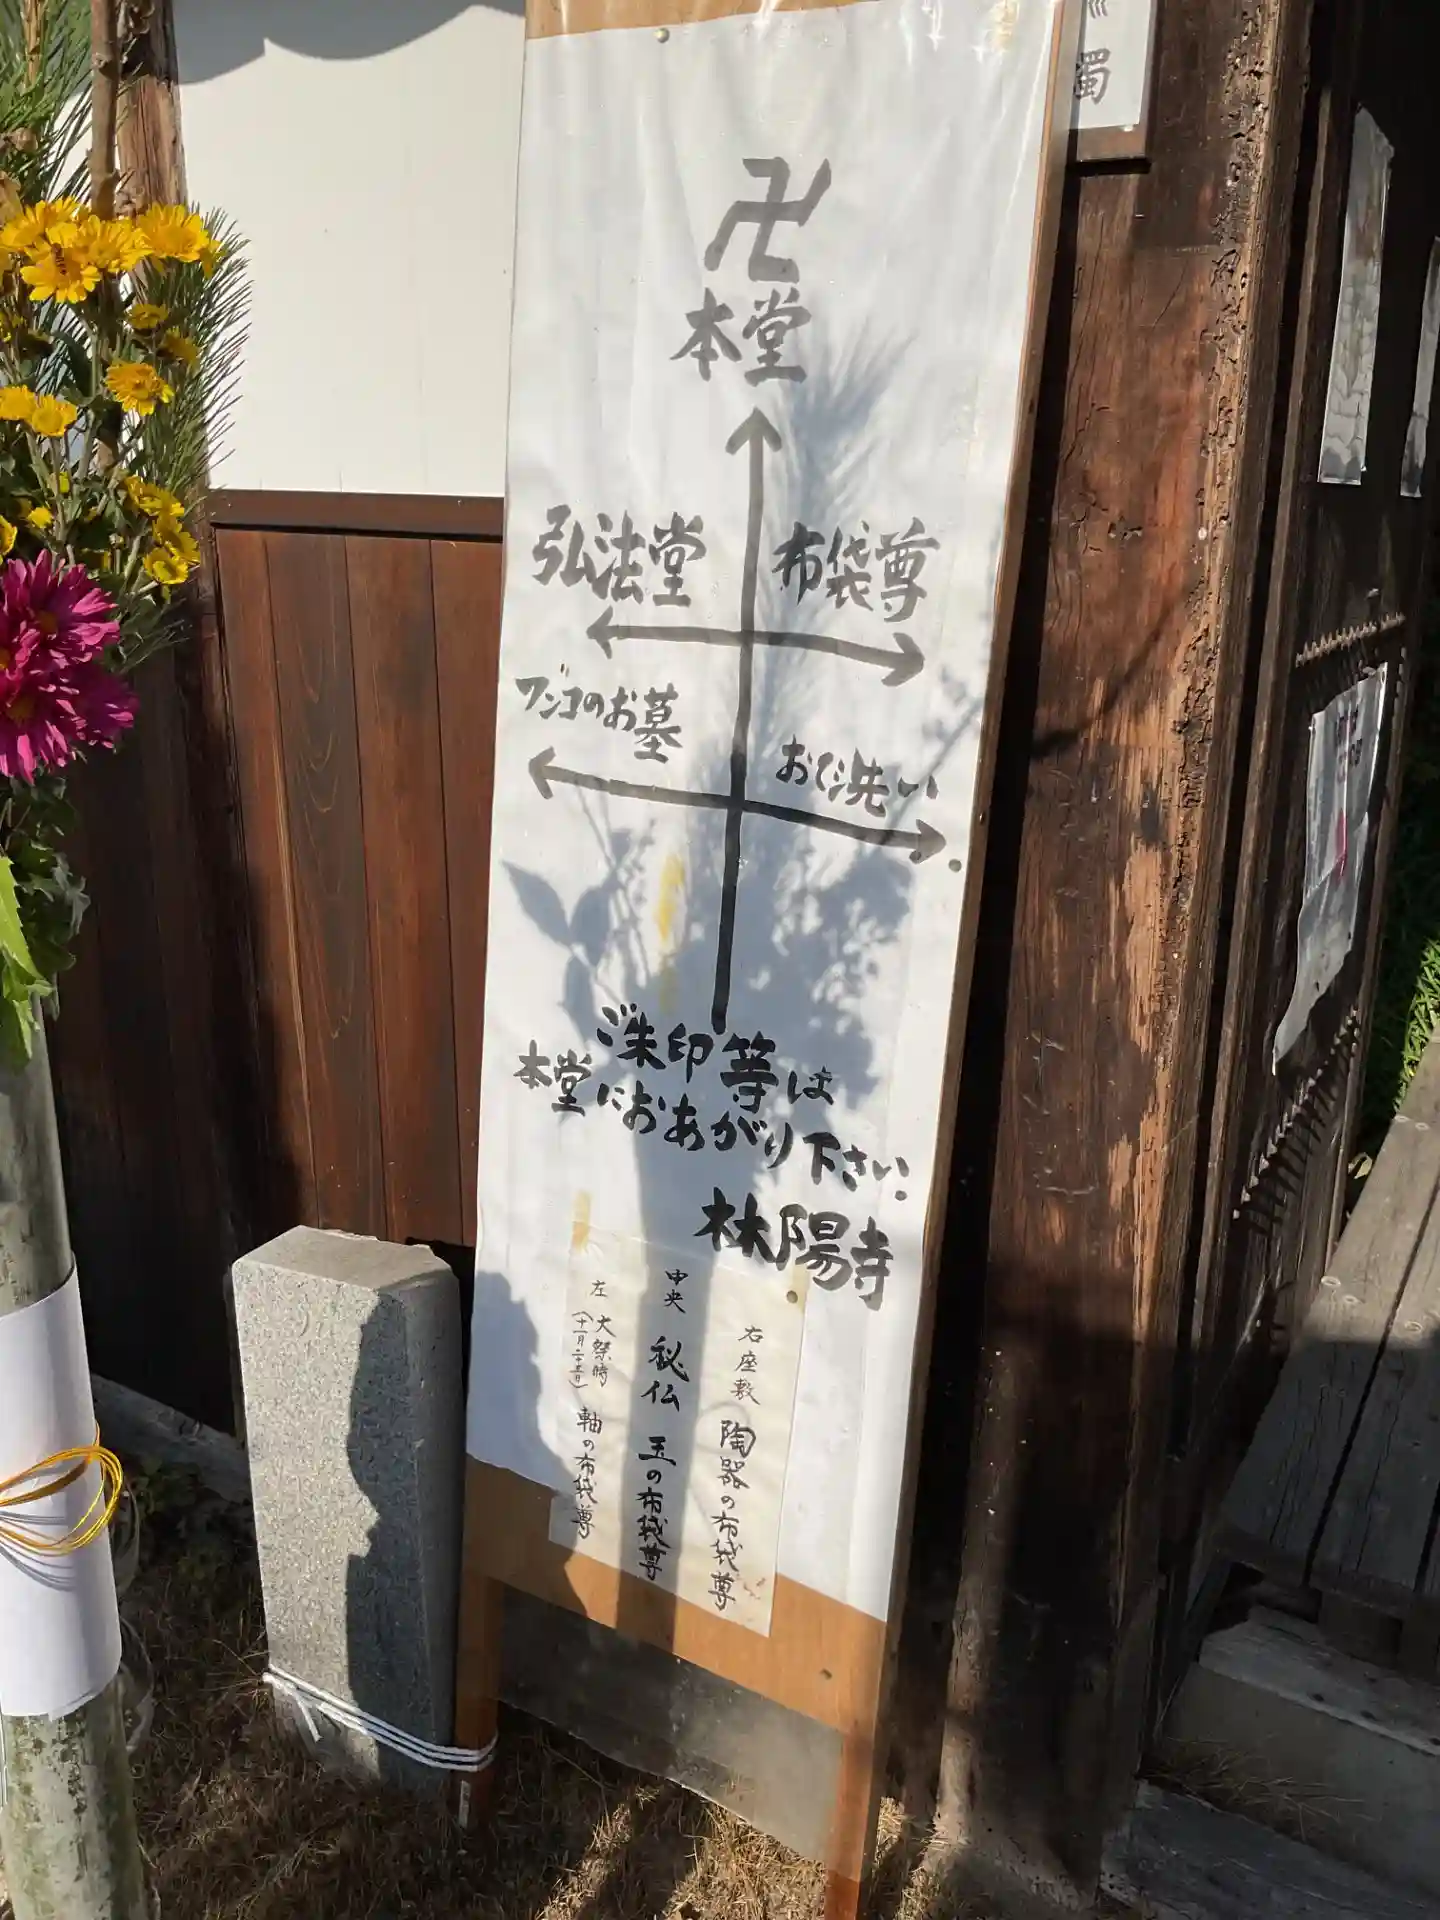 濁
卍
本堂
弘法堂
布袋尊
ワンコのお墓
おび洗い
ご朱印等は
本堂におあがり下さい。
林陽寺
右座敷 陶器の布袋尊
中央 秘仏 玉の布袋尊
左 大祭時 軸の布袋尊